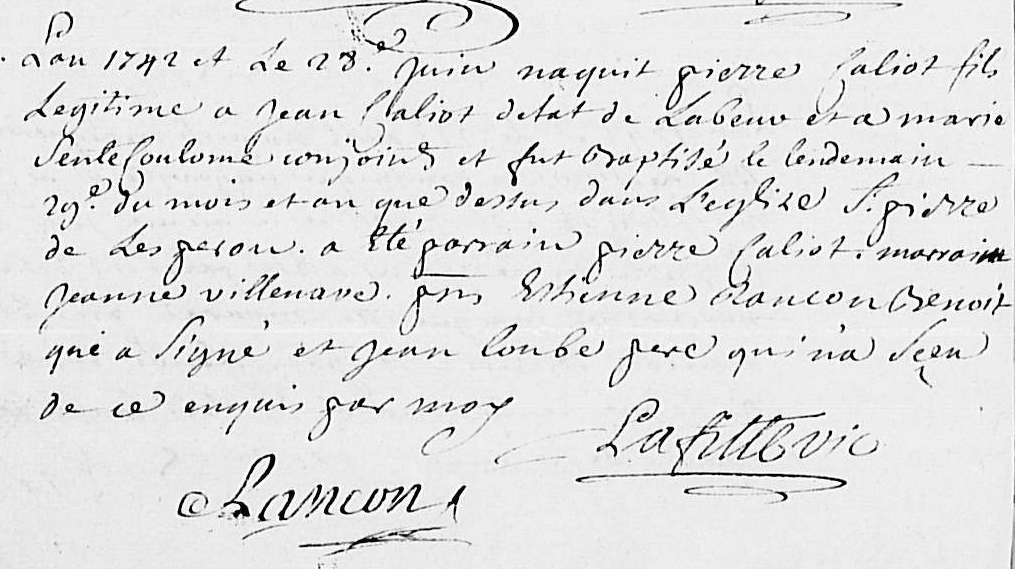 L'an 1742 et Le 28.e juin naquit pierre Caliot fils
Legitime a jean Caliot detat de Labeur et a marie
Coulome conjoints et fut Baptisé le lendemain
29.e du mois et an que dessus dans L'eglize St. pierre
de Lesperon. a Eté parrain pierre Caliot. marraine
jeanne villenave. pns Estienne Rancon Benoit
qui a Signé et jean Loube pere qui n'a Sçeu
de ce enquis par moy
Lafitte vic
Rancon